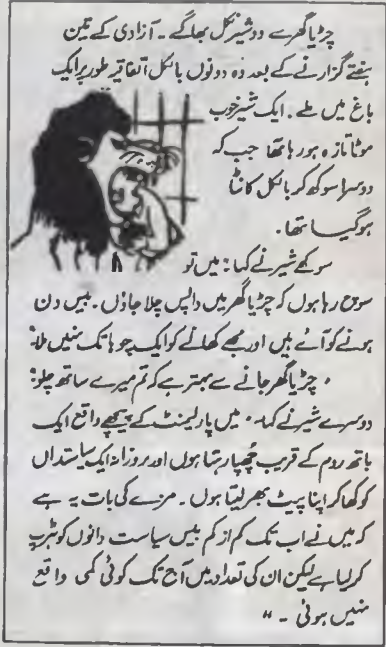 چڑیا گھر سے دو شیر نکل بھاگے ۔ آزادی کے تین
ہفتے گزارنے کے بعد وہ دونوں بالکل اتفاقیہ طور پر ایک
باغ میں ملے ۔ ایک شیر خوب
موٹا تازہ ہو رہا تھا جب کہ
دوسرا سوکھ کر بالکل کانٹا
ہو گیا تھا ۔
سوکھے شیر نے کہا : میں تو
سوچ رہا ہوں کہ چڑیا گھر میں واپس چلا جاؤں ۔ بیس دن
ہونے کو آئے ہیں اور مجھے کھانے کو ایک چوہا تک نہیں ملا "
" چڑیا گھر جانے سے بہتر ہے کہ تم میرے ساتھ چلو "
دوسرے شیر نے کہا ۔ " میں پارلیمنٹ کے پیچھے واقع ایک
باتھ روم کے قریب چھپا رہتا ہوں اور روزانہ ایک سیاستداں
کو کھا کر اپنا پیٹ بھر لیتا ہوں ۔ مزے کی بات یہ ہے
کہ میں نے اب تک کم از کم بیس سیاست دانوں کو ہڑپ
کر لیا ہے لیکن ان کی تعداد میں آج تک کوئی کمی واقع
نہیں ہوئی ۔ "